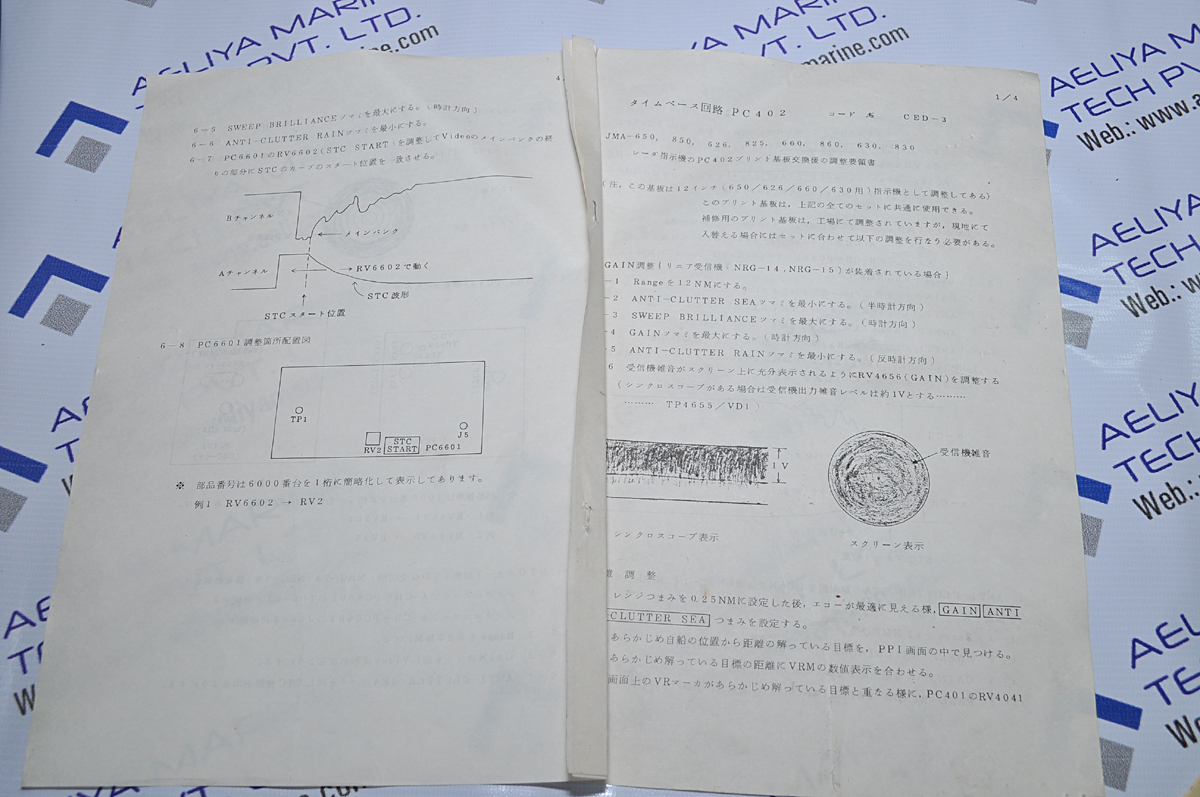 AELIYA MARINE
PVT. LTD.
marine.com
AELIYA MARINE
PVT. LTD.
marine.com
AELIYA M
TECH P
Web.: www.a
AELIYA
TECH PV
Web.: w
AELIYA
TECH
Web.:
AELI
TE
4
6-5 SWEEP BRILLIANCEツマミを最大にする。(時計方向)
6-6 ANTI-CLUTTER RAINツマミを最小にする。
6-7 PC6601のRV6602(STC START)を調整してVideoのメインバンクの終
りの部分にSTCのカーブのスタート位置を一致させる。
Bチャンネル
メインバンク
Aチャンネル
RV6602で動く
STC波形
STCスタート位置
6-8 PC6601調整箇所配置図
TP1
RV2
STC
START
PC6601
J5
※ 部品番号は6000番台を1桁に簡略化して表示してあります。
例1 RV6602 → RV2
1/4
タイムベース回路 PC402 コード No. CED-3
JMA-650, 850, 626, 825, 660, 860, 630, 830
レーダ指示機のPC402プリント基板交換後の調整要領書
(注,この基板は12インチ(650/626/660/630用)指示機として調整してある)
このプリント基板は,上記の全てのセットに共通に使用できる。
補修用のプリント基板は,工場にて調整されていますが,現地にて
入替える場合にはセットに合わせて以下の調整を行なう必要がある。
GAIN調整{リニア受信機(NRG-14,NRG-15)が装着されている場合}
-1 Rangeを12NMにする。
-2 ANTI-CLUTTER SEAツマミを最小にする。(半時計方向)
-3 SWEEP BRILLIANCEツマミを最大にする。(時計方向)
-4 GAINツマミを最大にする。(時計方向)
5 ANTI-CLUTTER RAINツマミを最小にする。(反時計方向)
6 受信機雑音がスクリーン上に充分表示されるようにRV4656(GAIN)を調整する
(シンクロスコープがある場合は受信機出力雑音レベルは約1Vとする………
……… TP4655/VD1)
1V
受信機雑音
シンクロスコープ表示
スクリーン表示
調 整
レンジつまみを0.25NMに設定した後,エコーが最適に見える様,GAIN ANTI
CLUTTER SEA つまみを設定する。
あらかじめ自船の位置から距離の解っている目標を,PPI画面の中で見つける。
あらかじめ解っている目標の距離にVRMの数値表示を合わせる。
画面上のVRマーカがあらかじめ解っている目標と重なる様に,PC401のRV4041